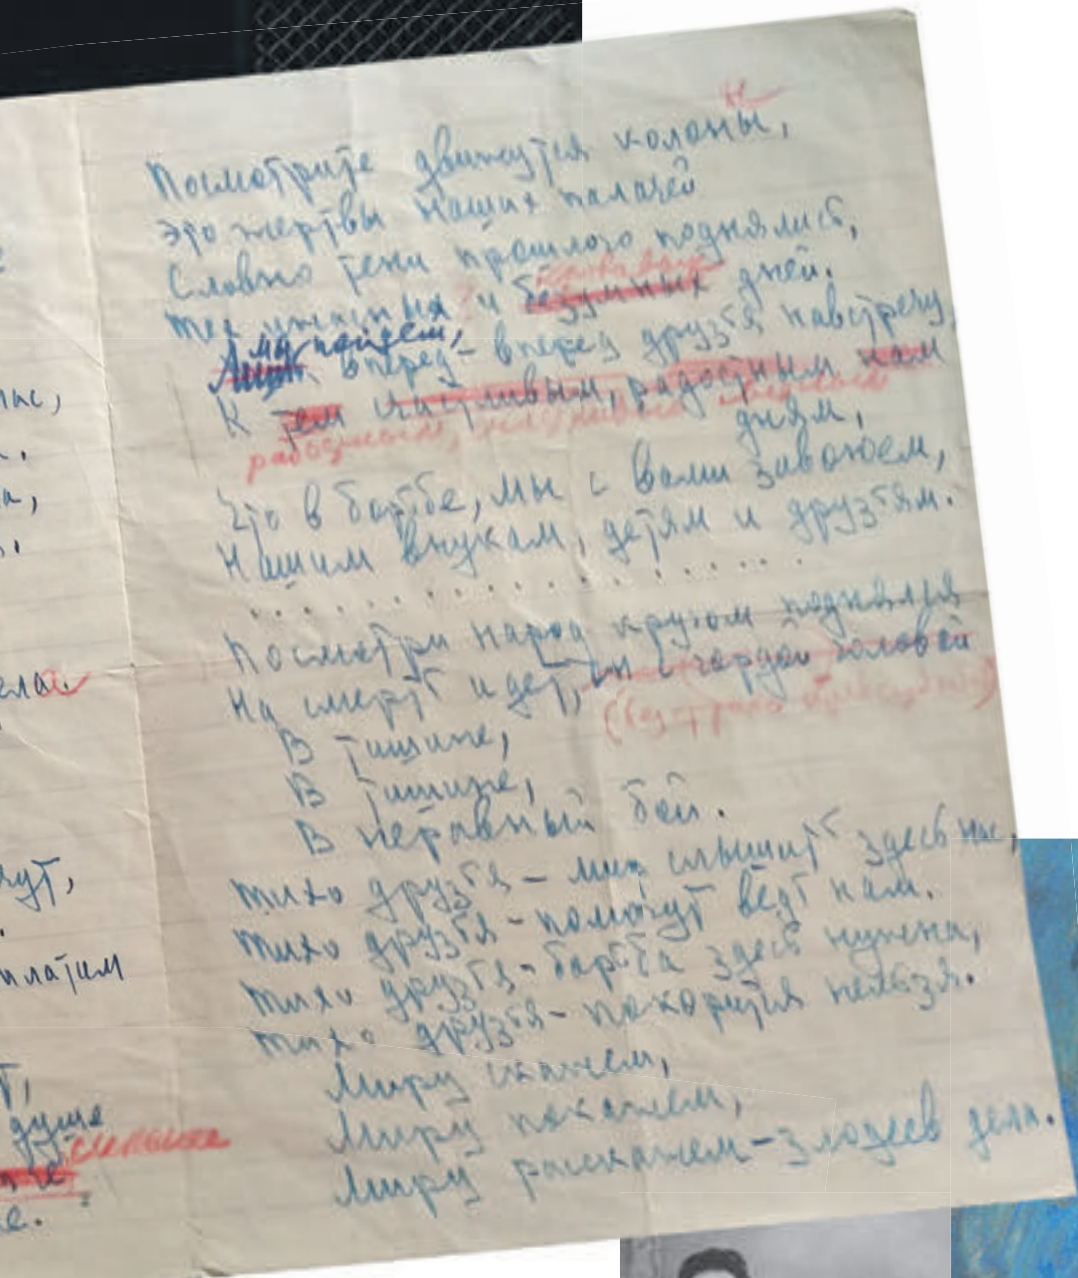 Посмотрите движутся колоны,
н
это жертвы наших палачей
Словно тени прошлого поднялись,
тех и безумных дней.
кровавых
мы пойдем,
вперед - вперед друзья навстречу
К тем счастливым, радостным нам
радостным, счастливым
дням,
Что в барбе, мы с вами завоюем,
Нашим внукам, детям и друзьям.
. . . . . . . . . . . . . . .
Посмотри народ кругом поднялся
На смерть идет, он с гордой головой
(без страха
В тишине,
В тишине,
В неравный бой.
тихо друзья - мир слышит здесь нас,
тихо друзья - помогут ведь нам.
тихо друзья - барьба здесь нужна,
тихо друзья - покорится нельзя.
Миру скажем,
Миру покажем,
Миру раскажем - злодеев дела.
нас,
а,
ела.
гут,
платим
т,
душе
е.